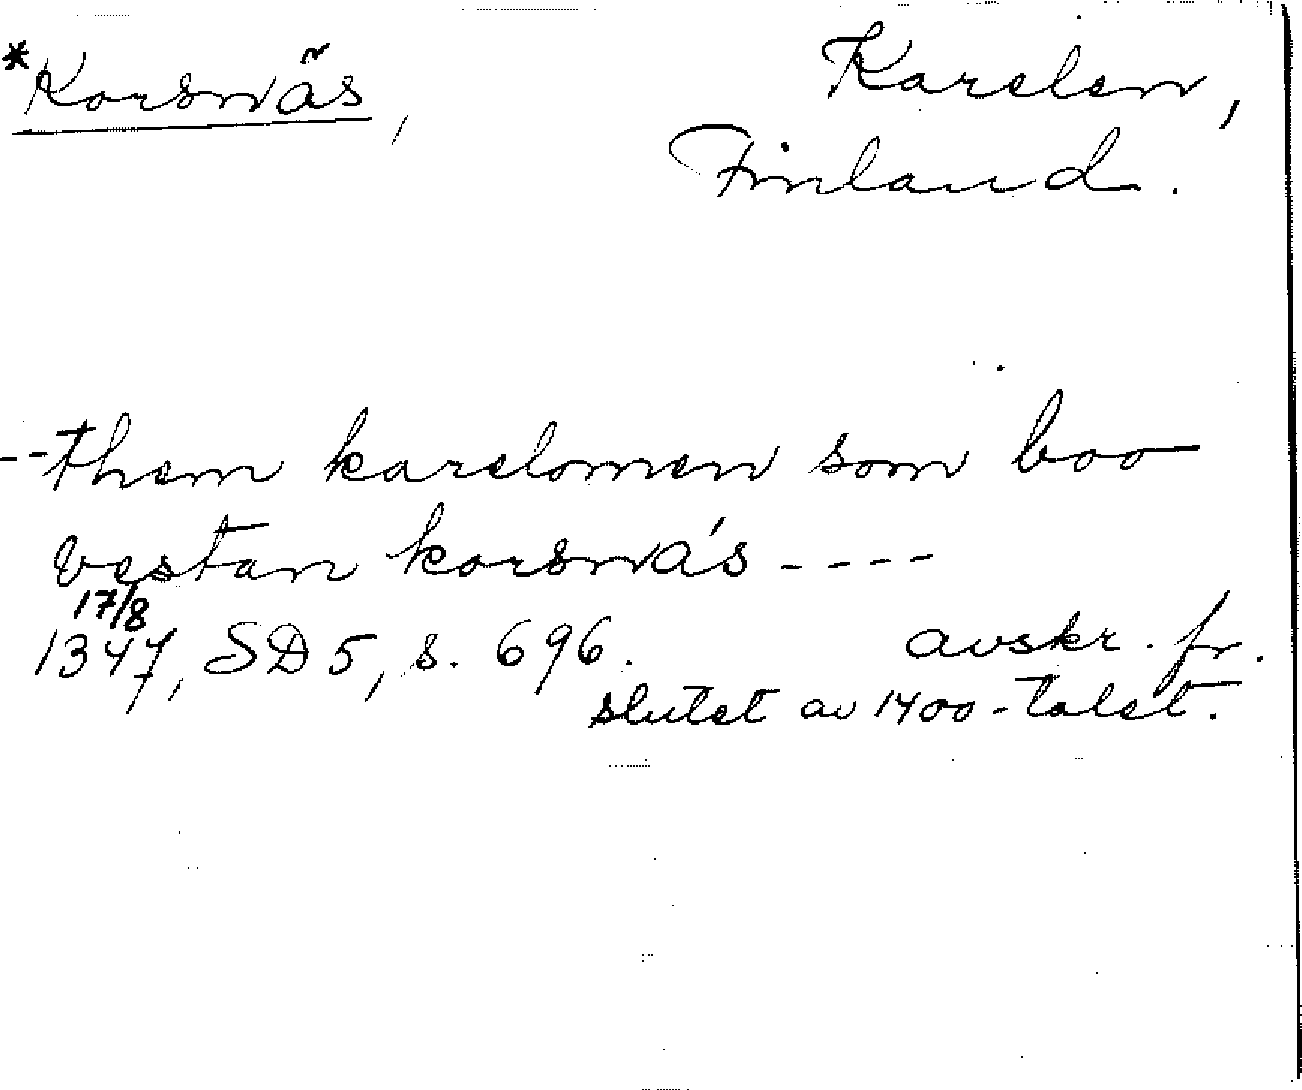 *Korsnäs,
Karelen,
Finland.
-- them karelomen som boo
vestan korsnás ----
17/8
1347, SD 5, s. 696.
avskr. fr.
slutet av 1400-talet.